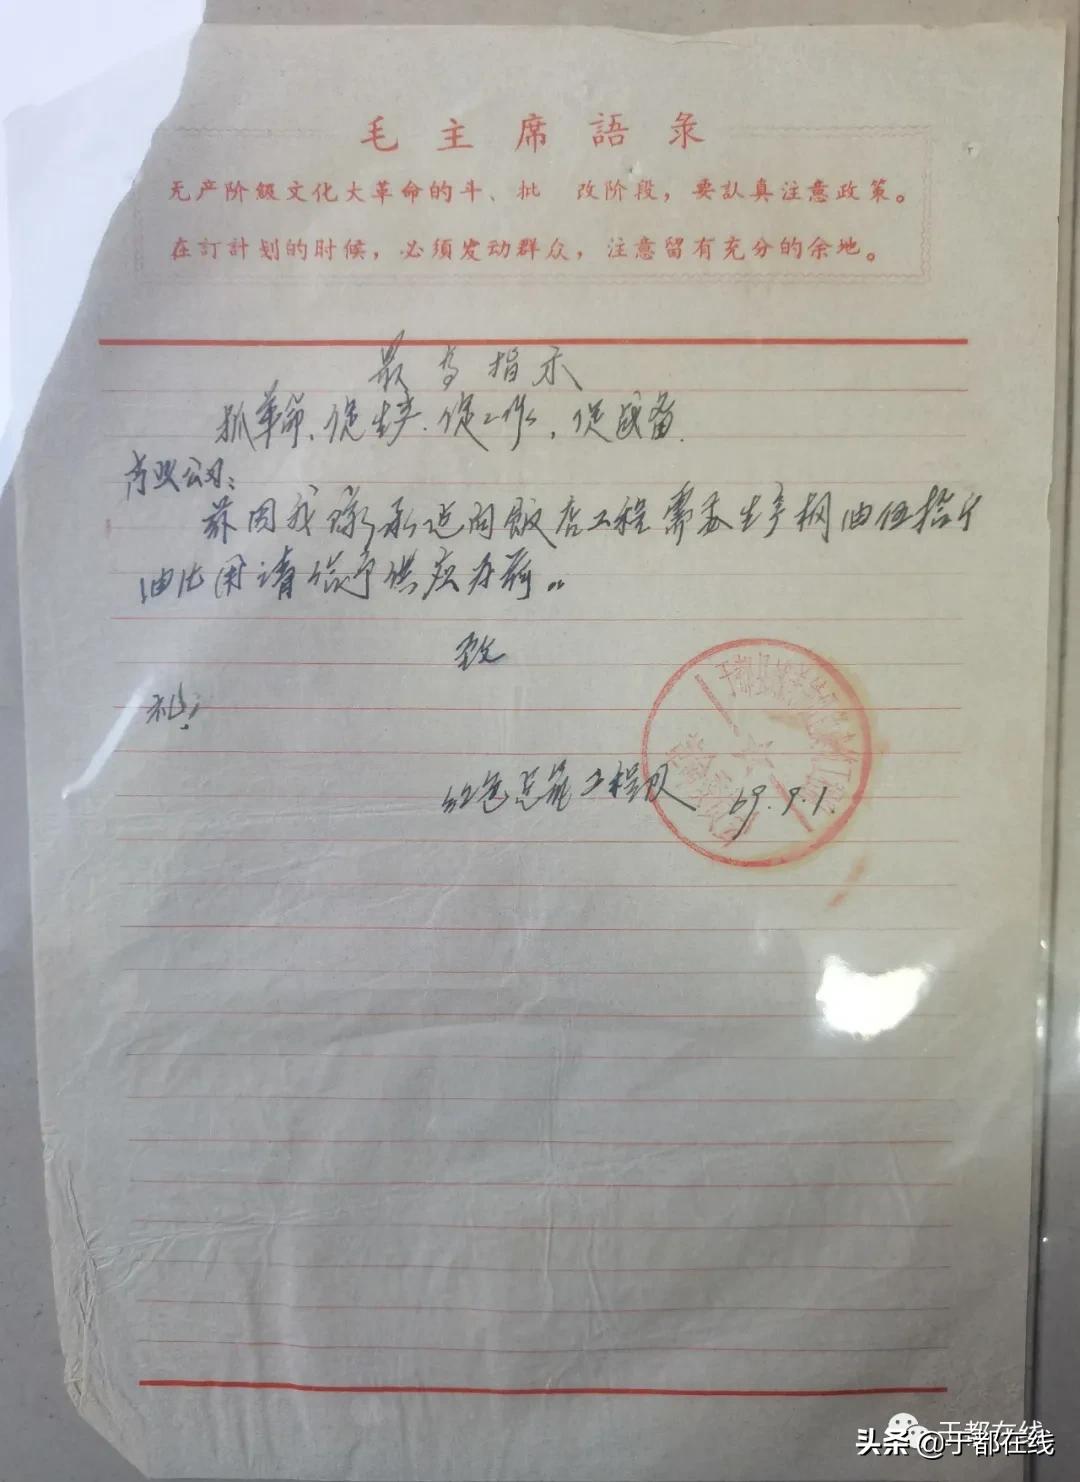 毛主席語录
无产阶級文化大革命的斗、批 改阶段，要認真注意政策。
在訂計划的时候，必须发动群众，注意留有充分的余地。
最高指示
抓革命、促生产、促工作，促战备.
商业公司：
兹因我队承 饭店工程需要生产桐油伍拾斤
油 用请 予供应为荷。
致
礼！
红色 工程队 69.9.1.
于都县
于都在线
头条@于都在线